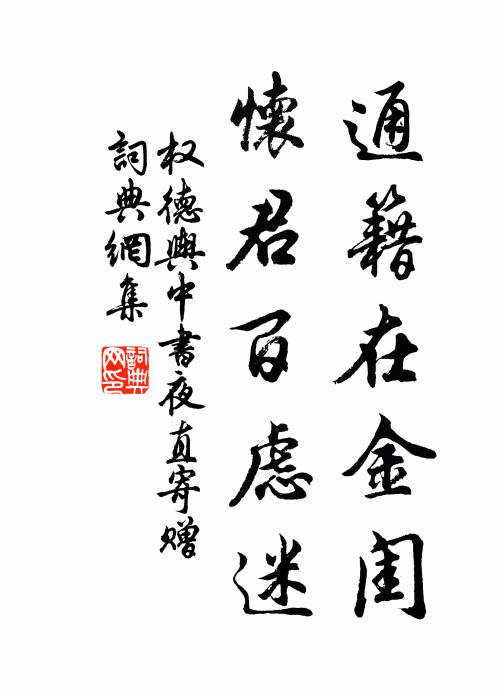 通籍在金闺
懷君百慮迷
权德輿中書夜直寄赠
詞典網集
詞典網印